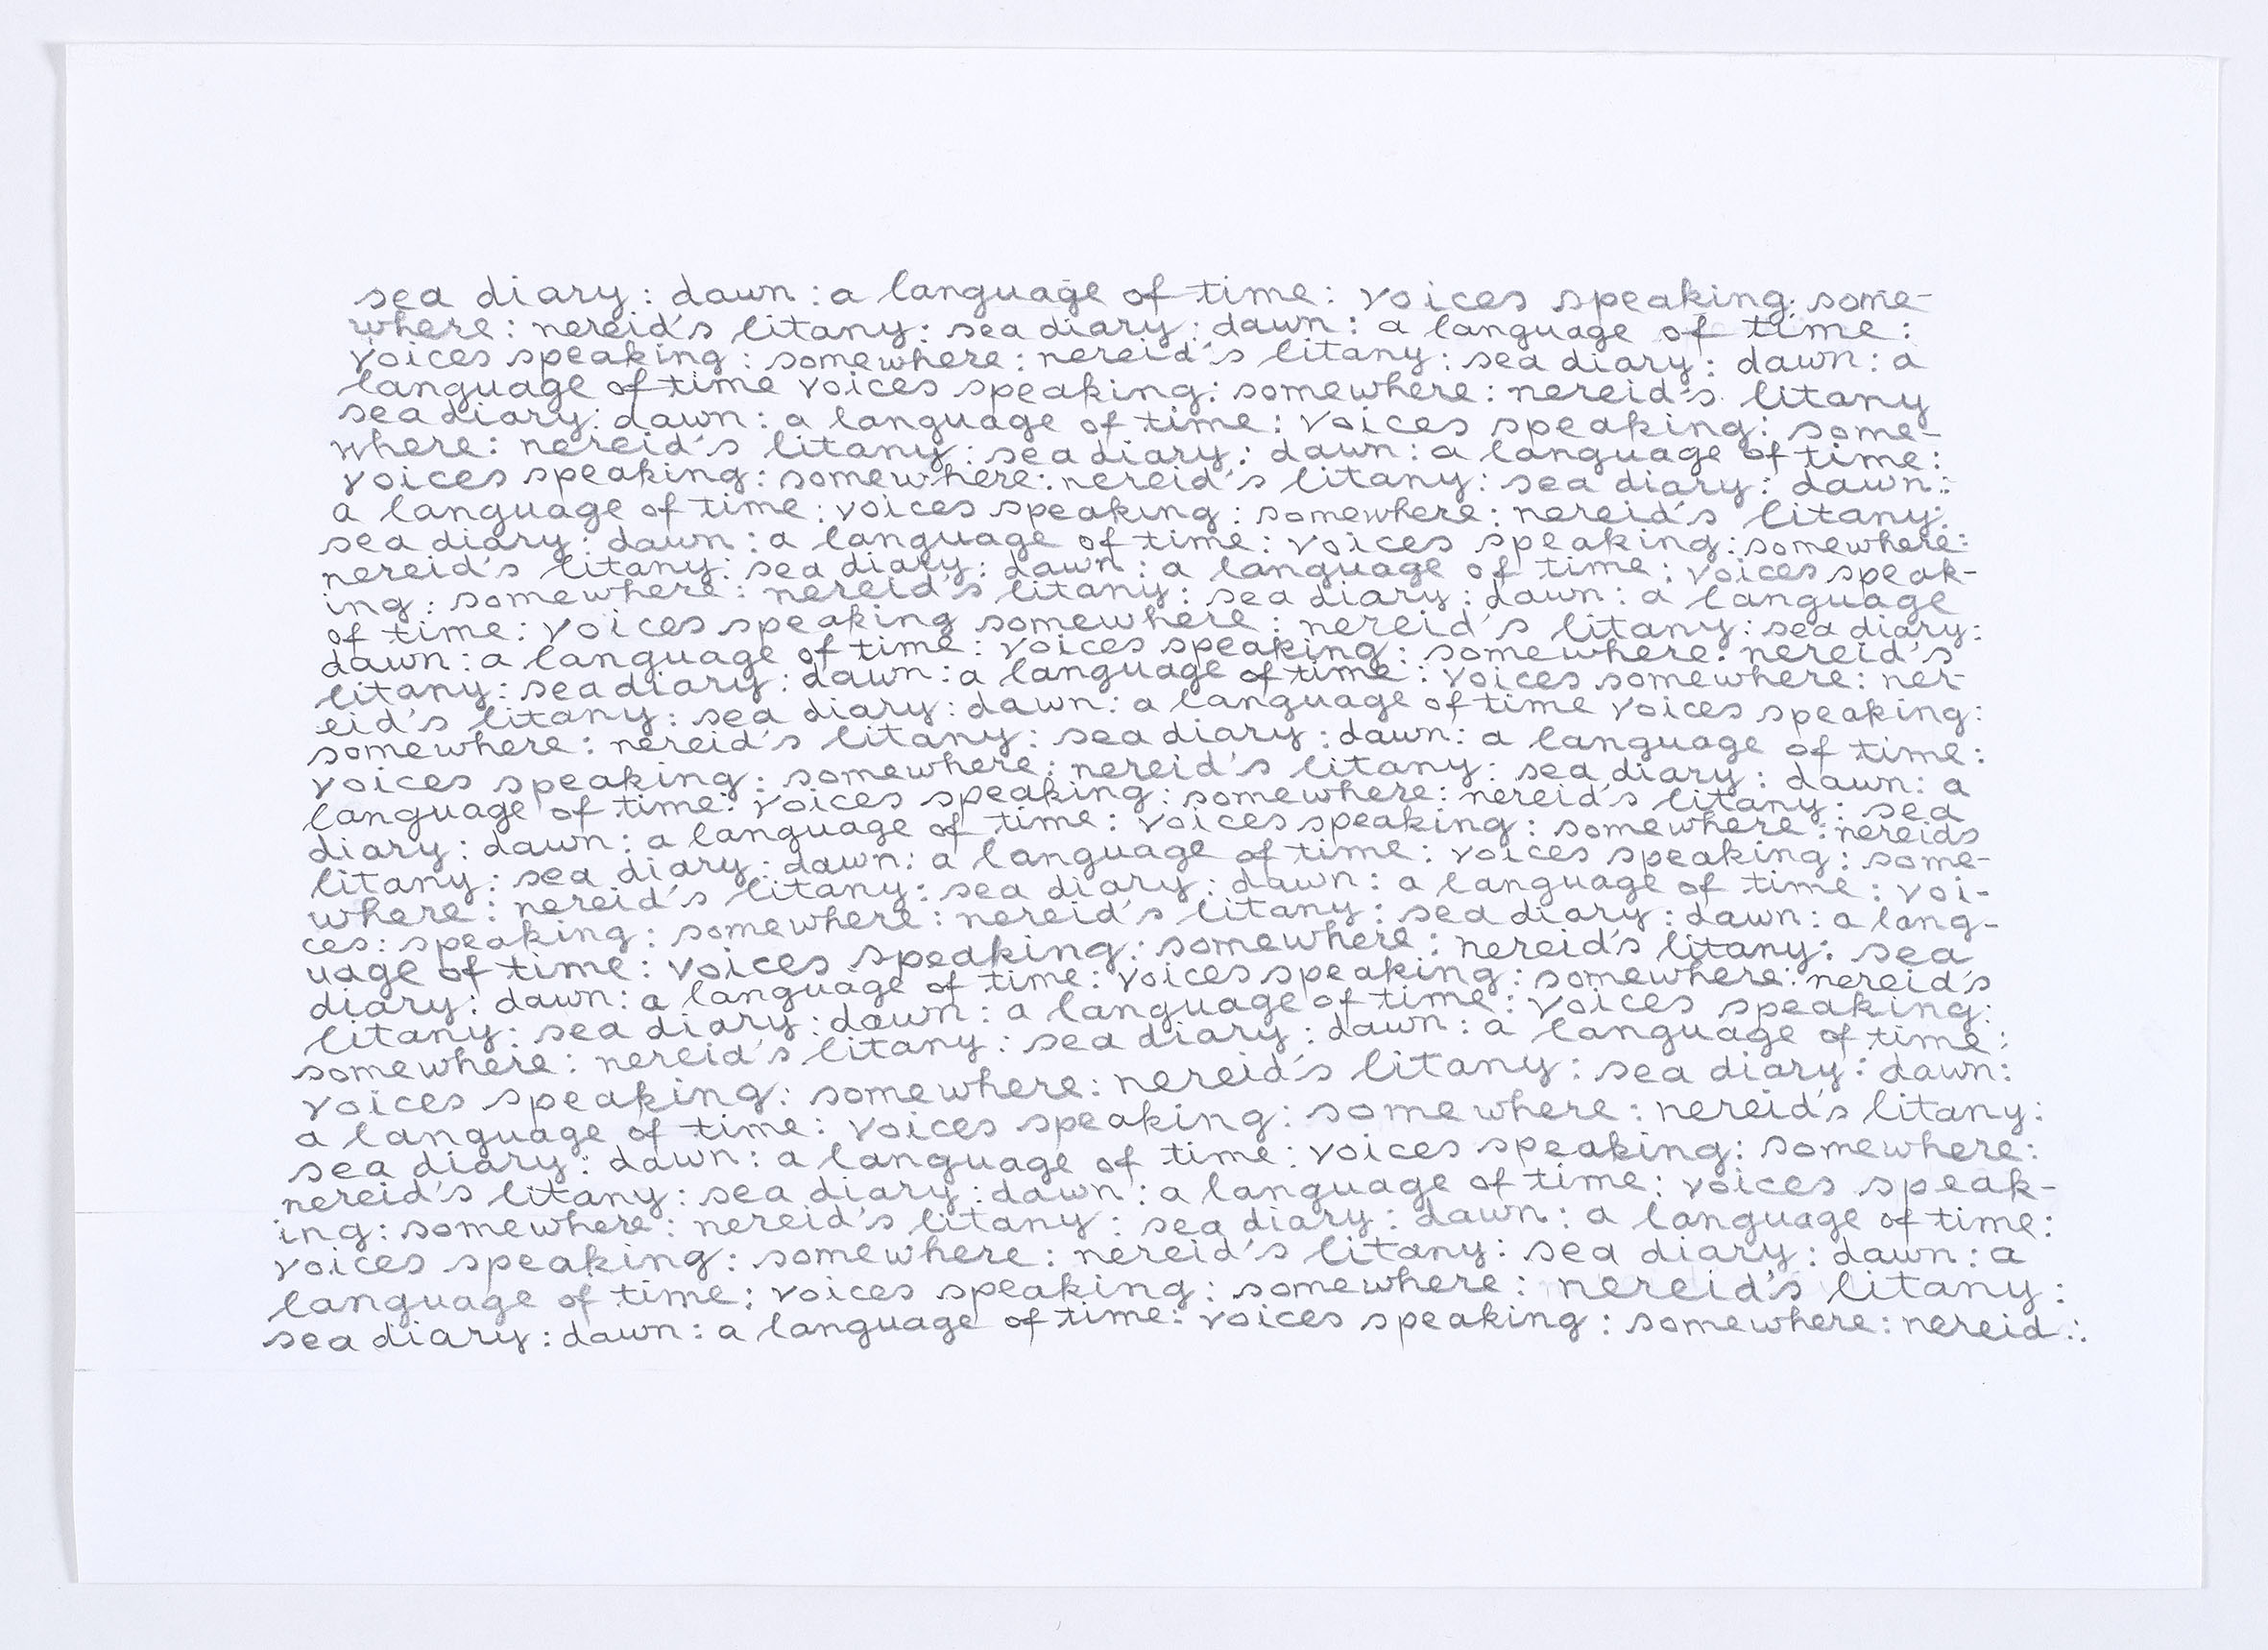 sea diary : dawn : a language of time : voices speaking : some-
where : nereid's litany : sea diary : dawn : a language of time :
voices speaking : somewhere : nereid's litany : sea diary : dawn : a
language of time voices speaking : somewhere : nereid's litany
sea diary : dawn : a language of time : voices speaking : some-
where : nereid's litany : sea diary : dawn : a language of time :
voices speaking : somewhere : nereid's litany : sea diary : dawn :
a language of time : voices speaking : somewhere : nereid's litany :
sea diary : dawn : a language of time : voices speaking : somewhere :
nereid's litany : sea diary : dawn : a language of time : voices speak-
ing : somewhere : nereid's litany : sea diary : dawn : a language
of time : voices speaking somewhere : nereid's litany : sea diary :
dawn : a language of time : voices speaking : somewhere : nereid's
litany : sea diary : dawn : a language of time : voices somewhere : ner-
eid's litany : sea diary : dawn : a language of time voices speaking :
somewhere : nereid's litany : sea diary : dawn : a language of time :
voices speaking : somewhere : nereid's litany : sea diary : dawn : a
language of time : voices speaking : somewhere : nereid's litany : sea
diary : dawn : a language of time : voices speaking : somewhere : nereids
litany : sea diary : dawn : a language of time : voices speaking : some-
where : nereid's litany : sea diary : dawn : a language of time : voi-
ces : speaking : somewhere : nereid's litany : sea diary : dawn : a lang-
uage of time : voices speaking : somewhere : nereid's litany : sea
diary : dawn : a language of time : voices speaking : somewhere : nereid's
litany : sea diary : dawn : a language of time : voices speaking :
somewhere : nereid's litany : sea diary : dawn : a language of time :
voices speaking : somewhere : nereid's litany : sea diary : dawn :
a language of time : voices speaking : somewhere : nereid's litany :
sea diary : dawn : a language of time : voices speaking : somewhere :
nereid's litany : sea diary : dawn : a language of time : voices speak-
ing : somewhere : nereid's litany : sea diary : dawn : a language of time :
voices speaking : somewhere : nereid's litany : sea diary : dawn : a
language of time : voices speaking : somewhere : nereid's litany :
sea diary : dawn : a language of time : voices speaking : somewhere : nereid .: